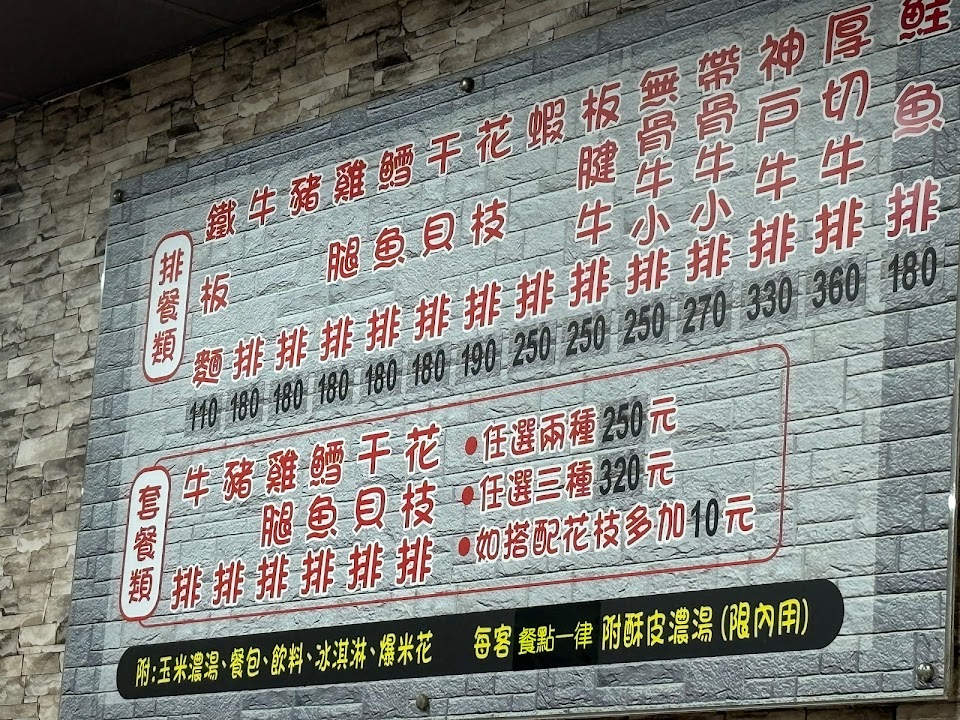 排餐類
鐵板麵 110
牛排 180
豬排 180
雞腿排 180
鱈魚排 180
干貝排 180
花枝排 190
蝦排 250
板腱牛排 250
無骨牛小排 250
帶骨牛小排 270
神戶牛排 330
厚切牛排 360
鮭魚排 180
套餐類
牛排
豬排
雞腿排
鱈魚排
干貝排
花枝排
●任選兩種250元
●任選三種320元
●如搭配花枝多加10元
附:玉米濃湯、餐包、飲料、冰淇淋、爆米花 每客餐點一律附酥皮濃湯(限內用)